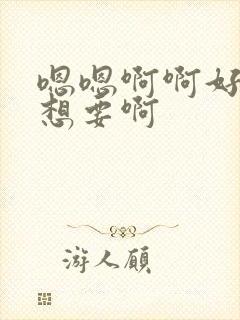 嗯嗯啊啊好
想要啊
游人顾